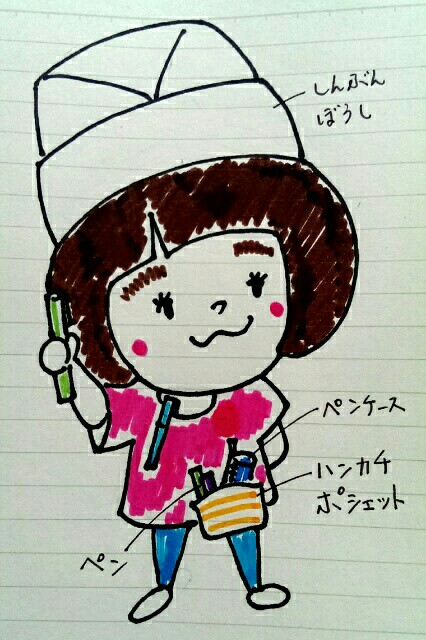 しんぶん
ぼうし
ペンケース
ハンカチ
ポシェット
ペン